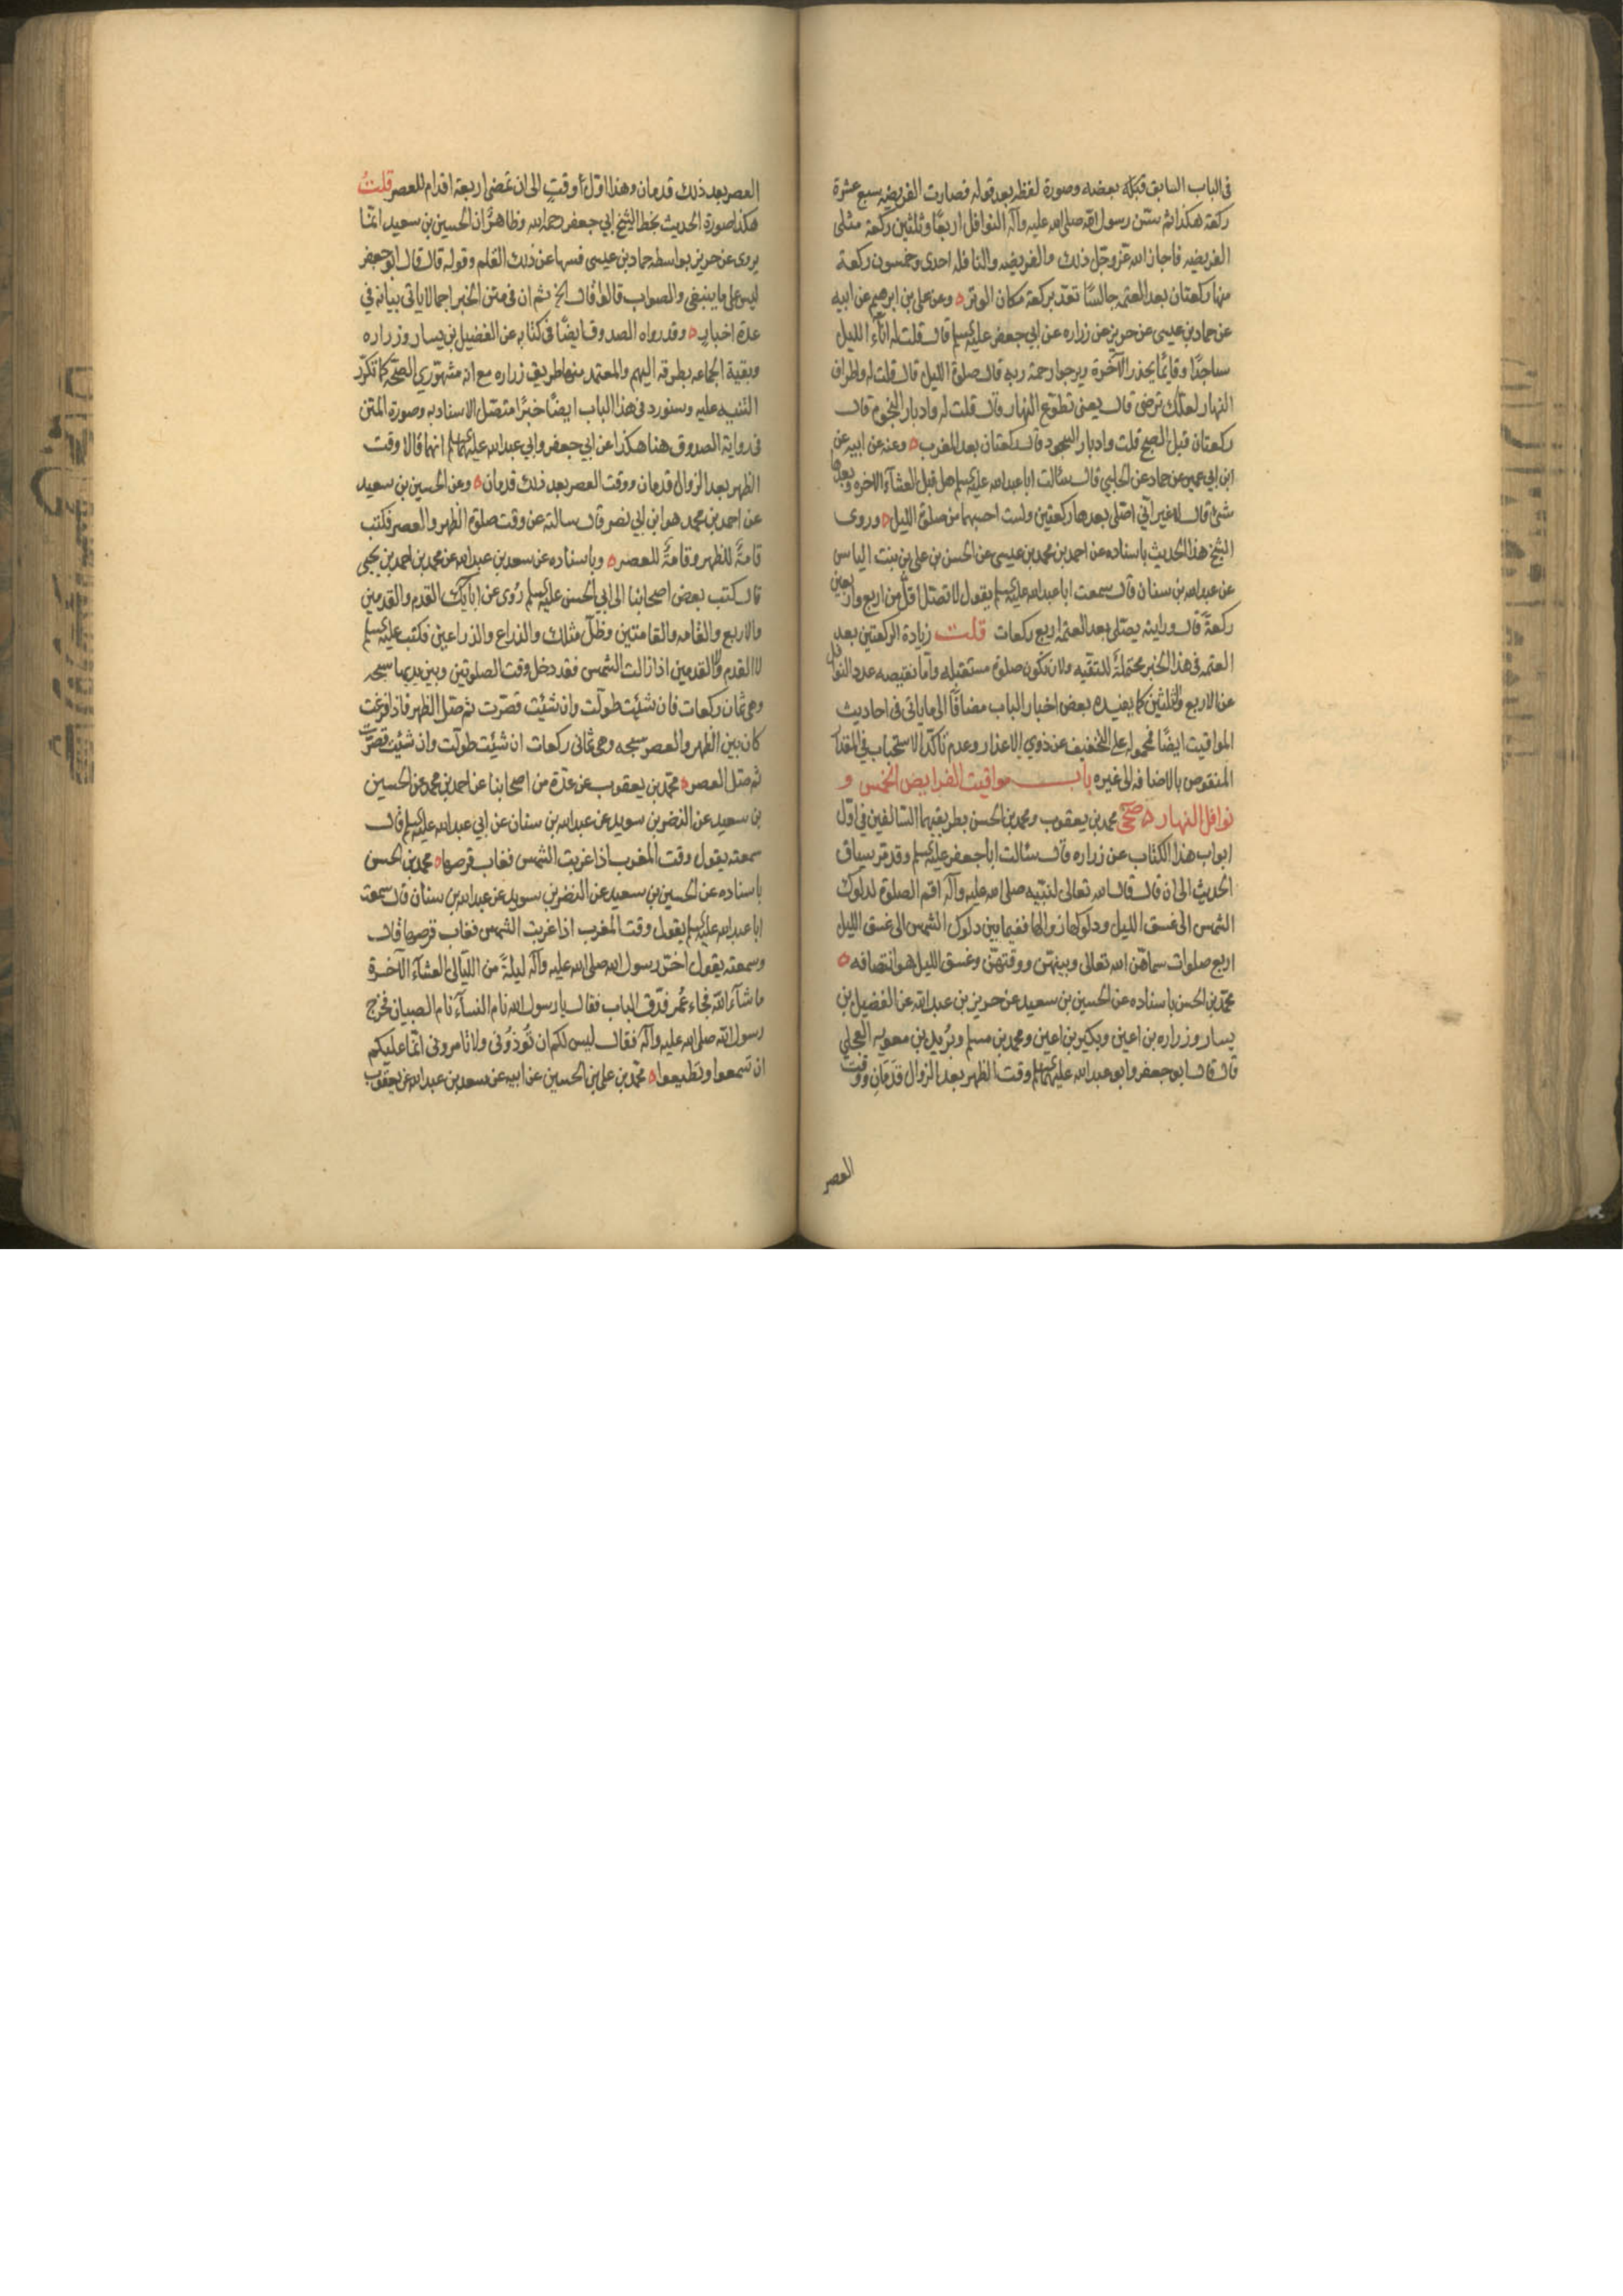 فى الباب السابق قبله بعضه وصورة لفظه بعد قوله فصارت الفريضه سبع عشرة
ركعة هكذا ثم سنن رسول الله صلى الله عليه وآله النوافل اربعًا وثلثين ركعة مثلى
الفريضه فاجاز الله عز وجل ذلك والفريضه والنافله احدى وخمسون ركعة
منها ركعتان بعد العتمه جالسًا تعد بركعة مكان الوتر ه وعن على بن ابرهيم عن ابيه
عن حماد بن عيسى عن حريز عن زراره عن ابي جعفر عليه السلم قال قلت له اناء الليل
ساجدًا وقائمًا يحذر الآخرة ويرجوا رحمة ربه قال صلوة الليل قال قلت له واطراف
النهار لعلك ترضى قال يعنى تطوع النهار قال قلت له وادبار النجوم قال
ركعتان قبل الصبح قلت وادبار السجود قال ركعتان بعد المغرب ه وعنه عن ابيه عن
ابن ابي عمير عن حماد عن الحلبي قال سئالت ابا عبد الله عليه السلم هل قبل العشآء الاخره وبعدها
شئ قال لا غير انى اصلى بعدها ركعتين ولست احسبهما من صلوة الليل ه وروى
الشيخ هذا الحديث باسناده عن احمد بن محمد بن عيسى عن الحسن بن على بن بنت الياس
عن عبد الله بن سنان قال سمعت ابا عبد الله عليه السلم يقول لا تصل اقل من اربع واربعين
ركعةً قال ورايته يصلى بعد العتمه اربع ركعات قلت زيادة الركعتين بعد
العتمه فى هذا الخبر محتملةً للتقيه ولان تكون صلوة مستقبله وآما نقيصه عدد النوافل
عن الاربع والثلثين كما يفيده بعض اخبار الباب مضافًا الى ما ياتى فى احاديث
المواقيت ايضًا فمحموله على التخفيف عن ذوي الاعذار وعدم تاكّد الاستحباب فى المقدار
المنقوص بالاضافه الى غيره باب مواقيت الفرايض الخمس و
نوافل النهار ه صحى محمد بن يعقوب ومحمد بن الحسن بطريقيهما السالفين فى اول
ابواب هذا الكتاب عن زراره قال سئالت ابا جعفر عليه السلم وقد مر بسياق
الحديث الى ان قال قال الله تعالى لنبيه صلى الله عليه وآله اقم الصلوة لدلوك
الشمس الى غسق الليل ودلوكها زوالها ففيما بين دلوك الشمس الى غسق الليل
اربع صلوات سماهن الله تعالى وبينهن ووقتهن وغسق الليل هو انتصافه ه
محمد بن الحسن باسناده عن الحسين بن سعيد عن حريز بن عبد الله عن الفضيل بن
يسار وزراره بن اعين وبكير بن اعين ومحمد بن مسلم وبُريد بن معويه العجلي
قال قال ابو جعفر وابو عبد الله عليهما السلم وقت الظهر بعد الزوال قدَمَانِ ووقت
العصر
العصر بعد ذلك قدمان وهذا اوّل وقتٍ الى ان تمضى اربعة اقدام للعصر قلتُ
هكذا صورة الحديث بخط الشيخ ابي جعفر رحمه الله وظاهرٌ ان الحسين بن سعيد انما
يروى عن حريز بواسطه حماد بن عيسى فسها عن ذلك القلم وقوله قال قال ابو جعفر
ليس على ما ينبغى والصواب قالا او قال الخ ثم ان فى متن الخبر اجمالا ياتى بيانه فى
عدة اخبارٍ ه وقد رواه الصدوق ايضًا فى كتابه عن الفضيل بن يسار وزراره
وبقية الجماعه بطرقه اليهم والمعتمد منها طريق زراره مع انه مشهورى الصحه كما تكرّر
التنبيه عليه وسنورد فى هذا الباب ايضًا خبرًا متصّل الاسناد به وصورة المتن
فى رواية الصدوق هنا هكذا عن ابي جعفر وابي عبد الله عليهما السلم انهما قالا وقت
الظهر بعد الزوال قدمان ووقت العصر بعد ذلك قدمان ه وعن الحسين بن سعيد
عن احمد بن محمد هو ابن ابي نصر قال سالته عن وقت صلوة الظهر والعصر فكتب
قامةً للظهر وقامةً للعصر ه وباسناده عن سعد بن عبد الله عن محمد بن احمد بن يحيى
قال كتب بعض اصحابنا الى ابي الحسن عليه السلم رُوى عن ابائك القدم والقدمين
والاربع والقامه والقامتين وظل مثلك والذراع والذراعين فكتب عليه السلم
لا القدم ولا القدمين اذا زالت الشمس فقد دخل وقت الصلوتين وبين يديها سبحه
وهى ثمان ركعات فان شئت طولت وان شئت قصّرت ثم صل الظهر فاذا فرغت
كان بين الظهر والعصر سبحه وهى ثمانى ركعات ان شئت طولت وان شئت قصرت
ثم صل العصر ه محمد بن يعقوب عن عدة من اصحابنا عن احمد بن محمد عن الحسين
بن سعيد عن النضر بن سويد عن عبد الله بن سنان عن ابي عبد الله عليه السلم قال
سمعته يقول وقت المغرب اذا غربت الشمس فغاب قرصها ه محمد بن الحسن
باسناده عن الحسين بن سعيد عن النضر بن سويد عن عبد الله بن سنان قال سمعت
ابا عبد الله عليه السلم يقول وقت المغرب اذا غربت الشمس فغاب قرصها قال
وسمعته يقول اخّر رسول الله صلى الله عليه وآله ليلةً من الليالى العشآء الآخرة
ما شآء الله فجاء عُمر فدّق الباب فقال يا رسول الله نام النسآء نام الصبيان فخرج
رسول الله صلى الله عليه وآله فقال ليس لكم ان تُوذُوْنى ولا تامرونى انما عليكم
ان تسمعوا وتطيعوا ه محمد بن على بن الحسين عن ابيه عن سعد بن عبد الله عن يعقوب